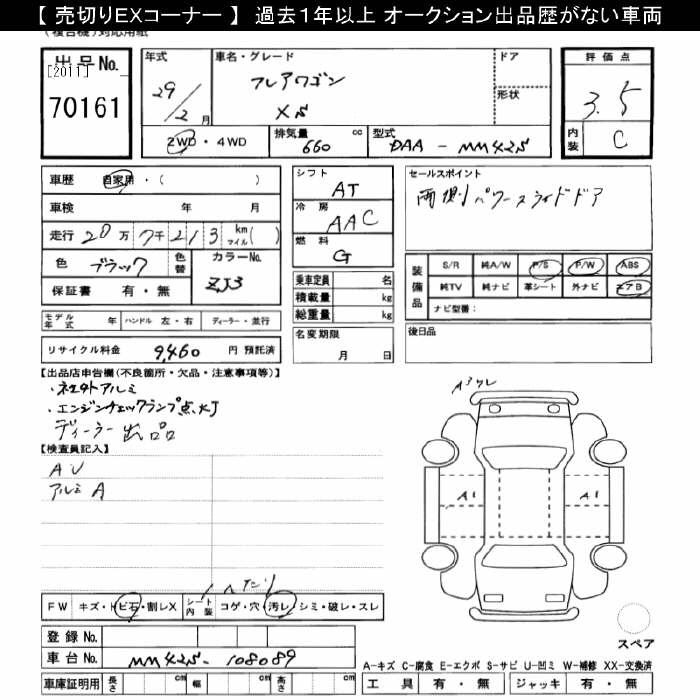 【 売切りEXコーナー 】 過去1年以上 オークション出品歴がない車両
出品No.
[2011]
70161
年式
29/2月
車名・グレード
フレアワゴン
XS
ドア
形状
評価点
3.5
内装
C
2WD・4WD
排気量 660 cc
型式 DAA - MM42S
車歴 自家用・( )
車検 年 月
走行 20万7千213 km マイル( )
色 ブラック 色替
カラーNo. ZJ3
保証書 有・無
シフト AT
冷房 AAC
燃料 G
乗車定員 名
積載量 kg
総重量 kg
名変期限
月 日
セールスポイント
両側パワースライドドア
装備品
S/R 純A/W P/S P/W ABS
純TV 純ナビ 革シート 外ナビ エアB
ナビ型番:
モデル年式 年 ハンドル 左・右 ディーラー・並行
後日品
リサイクル料金 9,460 円 預託済
【出品店申告欄(不良箇所・欠品・注意事項等)】
・社外アルミ
・エンジンチェックランプ点灯
ディーラー出品
【検査員記入】
AU
アルミA
A3 ワレ
A1
A1
ヘタリ
FW キズ・トビ石・割レX シート内装 コゲ・穴・汚レ・シミ・破レ・スレ
登録No.
車台No. MM42S-108089
スペア
A-キズ C-腐食 E-エクボ S-サビ U-凹ミ W-補修 XX-交換済
車庫証明用 長さ cm 幅 cm 高さ cm
工具 有・無 ジャッキ 有・無